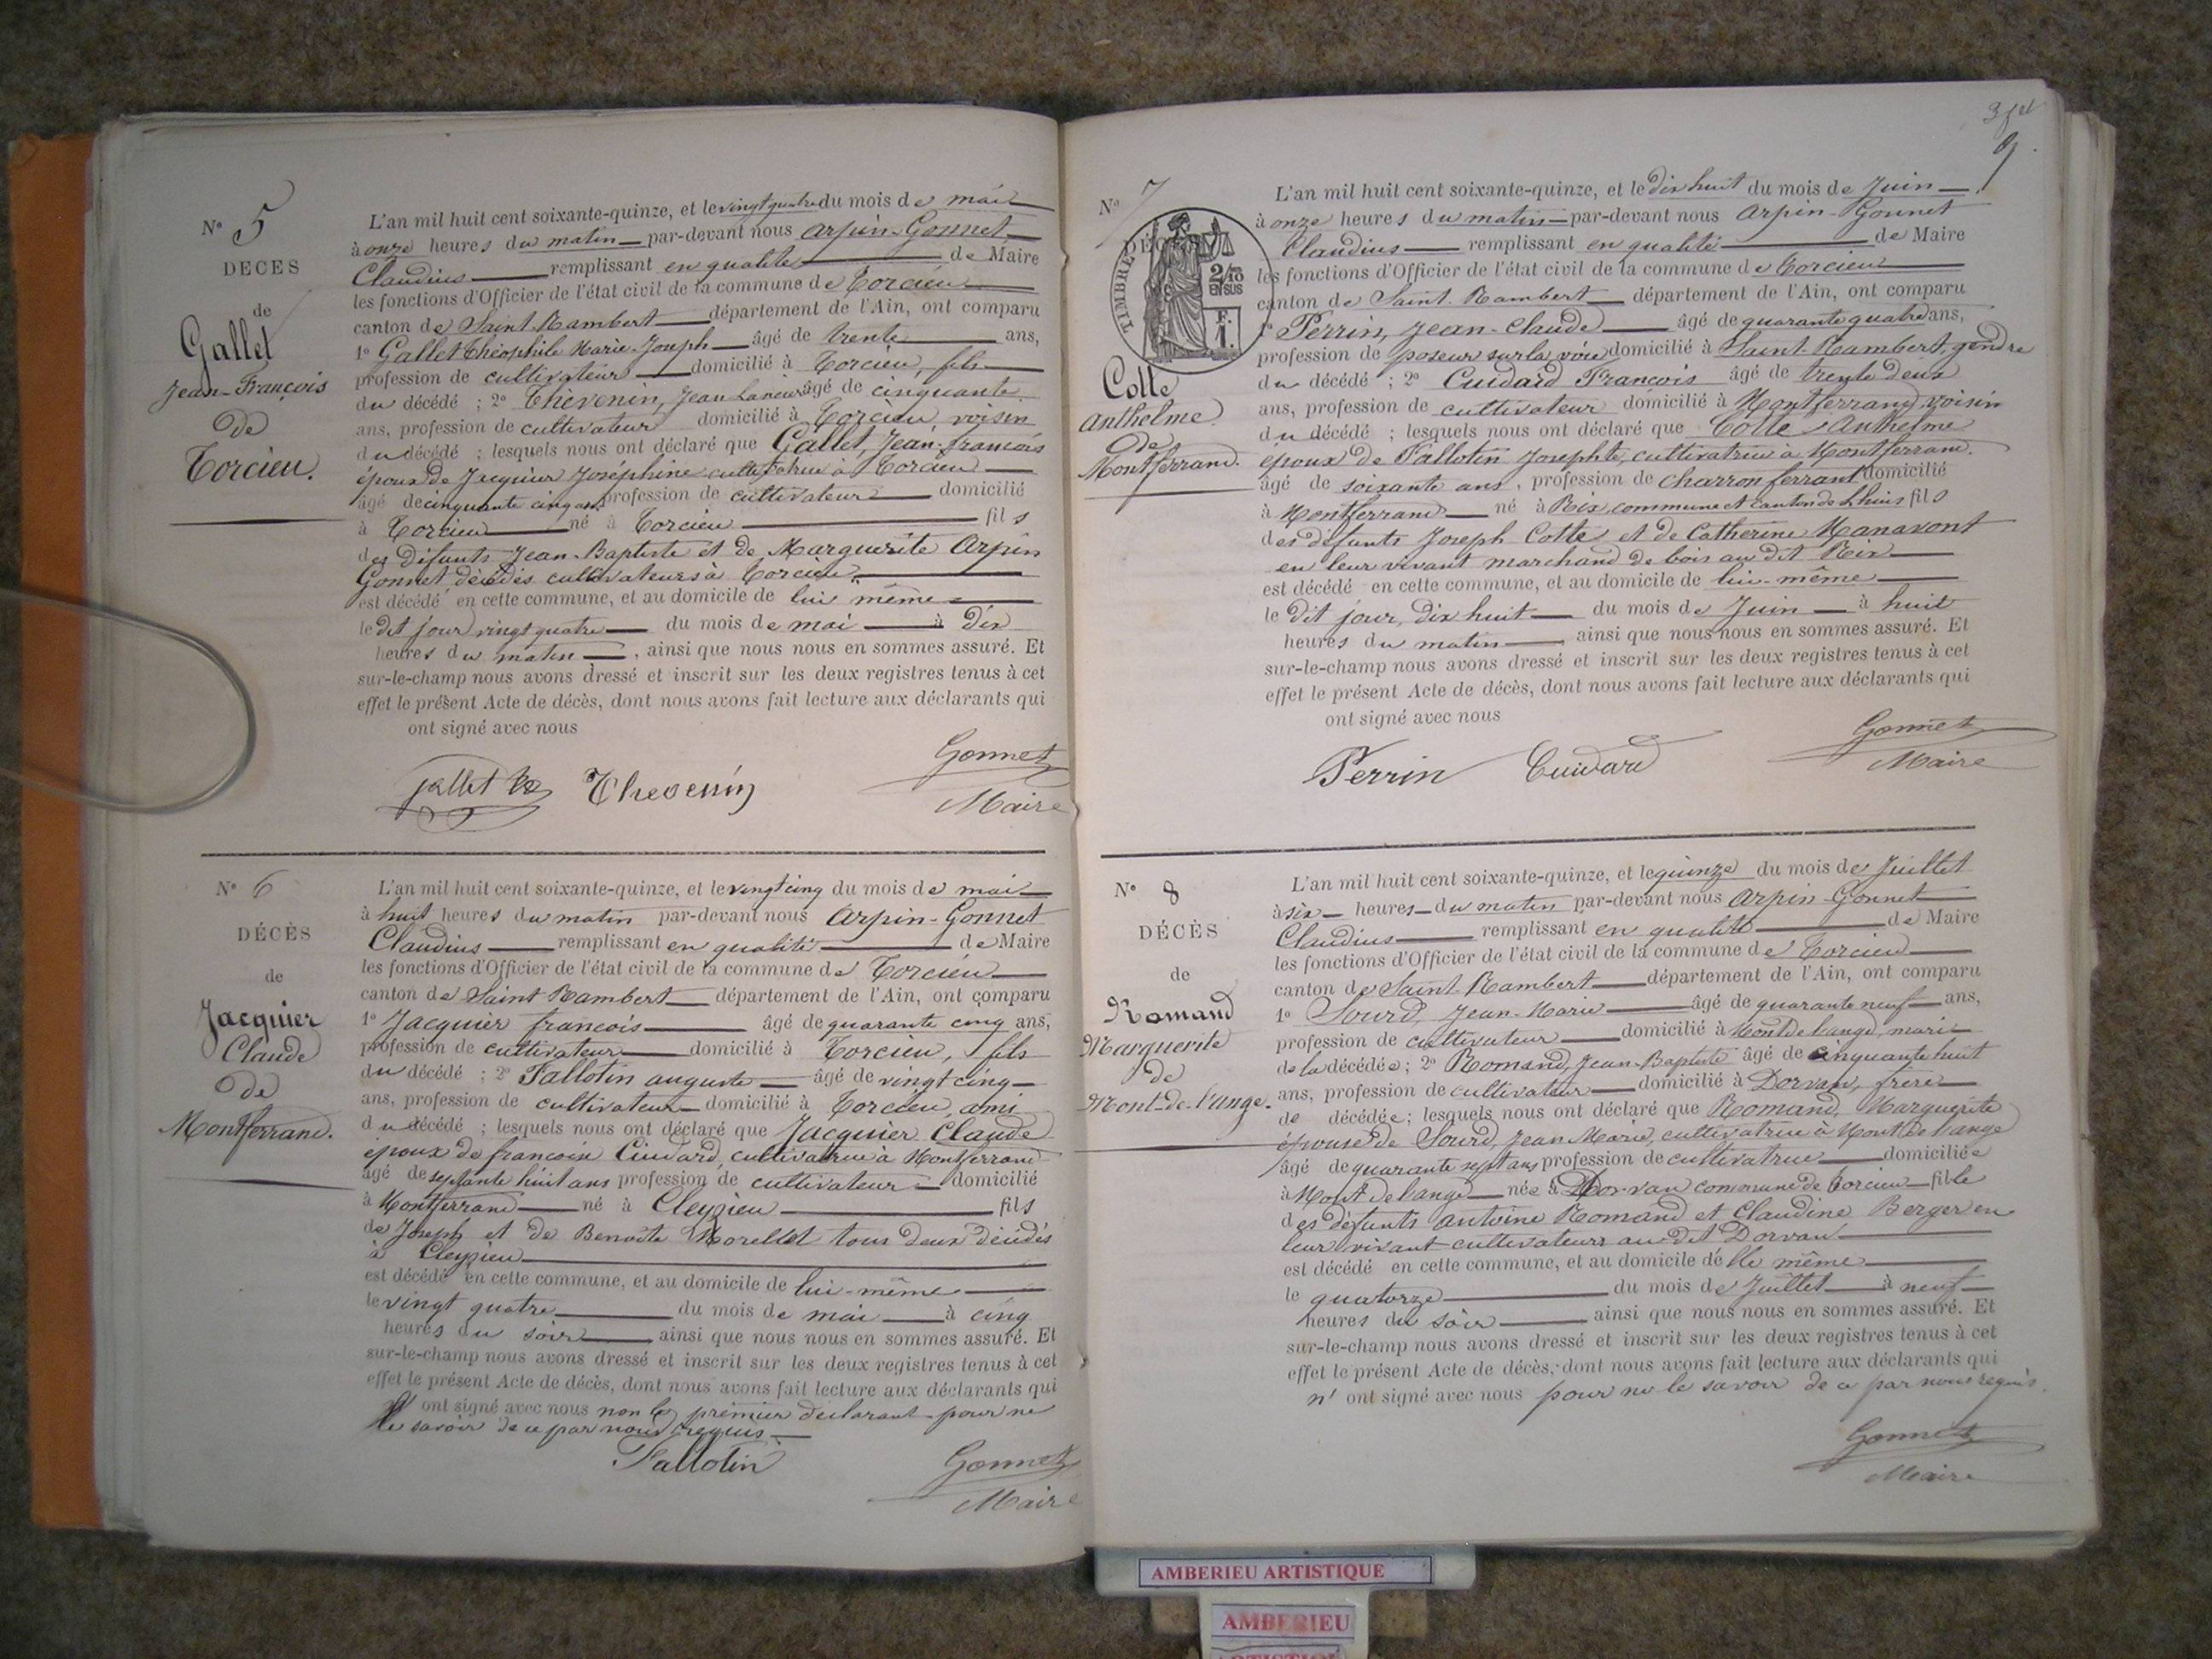 N° 5
DECES
de
Gallet
Jean-François
de
Torcieu.
L'an mil huit cent soixante-quinze, et le vingt quatre du mois de mai
à onze heures du matin par-devant nous Arpin-Gonnet
Claudius remplissant en qualité de Maire
les fonctions d'Officier de l'état civil de la commune de Torcieu
canton de Saint-Rambert département de l'Ain, ont comparu
1° Gallet Théophile Marie-Joseph âgé de trente ans,
profession de cultivateur domicilié à Torcieu, fils
du décédé ; 2° Thevenin, Jean âgé de cinquante
ans, profession de cultivateur domicilié à Torcieu voisin
du décédé ; lesquels nous ont déclaré que Gallet, Jean-françois
époux de Jacquier Joséphine cultivatrice à Torcieu
âgé de cinquante cinq ans profession de cultivateur domicilié
à Torcieu né à Torcieu fils
des défunts Jean-Baptiste et de Marguerite Arpin
Gonnet décédés cultivateurs à Torcieu
est décédé en cette commune, et au domicile de lui même
le dit jour vingt quatre du mois de mai à dix
heures du matin , ainsi que nous nous en sommes assuré. Et
sur-le-champ nous avons dressé et inscrit sur les deux registres tenus à cet
effet le présent Acte de décès, dont nous avons fait lecture aux déclarants qui
ont signé avec nous
gallet Thevenin Gonnet
Maire
N° 6
DÉCÈS
de
Jacquier
Claude
de
Montferrand.
L'an mil huit cent soixante-quinze, et le vingt cinq du mois de mai
à huit heures du matin par-devant nous Arpin-Gonnet
Claudius remplissant en qualité de Maire
les fonctions d'Officier de l'état civil de la commune de Torcieu
canton de Saint Rambert département de l'Ain, ont comparu
1° Jacquier françois âgé de quarante cinq ans,
profession de cultivateur domicilié à Torcieu, fils
du décédé ; 2° Tallotin auguste âgé de vingt cinq
ans, profession de cultivateur domicilié à Torcieu, ami
du décédé ; lesquels nous ont déclaré que Jacquier Claude
époux de françoise Cuidard, cultivatrice à Montferrand
âgé de septante huit ans profession de cultivateur domicilié
à Montferrand né à Cleyzieu fils
de Joseph et de Benoite Morellet tous deux décédés
à Cleyzieu
est décédé en cette commune, et au domicile de lui-même
le vingt quatre du mois de mai à cinq
heures du soir ainsi que nous nous en sommes assuré. Et
sur-le-champ nous avons dressé et inscrit sur les deux registres tenus à cet
effet le présent Acte de décès, dont nous avons fait lecture aux déclarants qui
ont signé avec nous non le premier déclarant pour ne
le savoir de ce par nous requis
Tallotin Gonnet
Maire
3 fet
9.
N° 7
DÉCÈS
TIMBRE
2/10 EN SUS
F. 1.
Cotte
Anthelme
de
Montferrand.
L'an mil huit cent soixante-quinze, et le dix huit du mois de Juin
à onze heures du matin par-devant nous Arpin-Gonnet
Claudius remplissant en qualité de Maire
les fonctions d'Officier de l'état civil de la commune de Torcieu
canton de Saint-Rambert département de l'Ain, ont comparu
1° Perrin, Jean-Claude âgé de quarante quatre ans,
profession de poseur sur la voie domicilié à Saint-Rambert, gendre
du décédé ; 2° Cuidard François âgé de trente deux
ans, profession de cultivateur domicilié à Montferrand, voisin
du décédé ; lesquels nous ont déclaré que Cotte Anthelme
époux de Tallotin Josephte, cultivatrice à Montferrand.
âgé de soixante ans, profession de charron ferrant domicilié
à Montferrand né à Rix, commune et canton de Lhuis fils
des défunts Joseph Cotte et de Catherine Manavont
en leur vivant marchand de bois au dit Rix
est décédé en cette commune, et au domicile de lui-même
le dit jour, dix huit du mois de Juin à huit
heures du matin ainsi que nous nous en sommes assuré. Et
sur-le-champ nous avons dressé et inscrit sur les deux registres tenus à cet
effet le présent Acte de décès, dont nous avons fait lecture aux déclarants qui
ont signé avec nous
Perrin Cuidard Gonnet
Maire
N° 8
DÉCÈS
de
Romand
Marguerite
de
Mont-de-l'ange.
L'an mil huit cent soixante-quinze, et le quinze du mois de Juillet
à six heures du matin par-devant nous Arpin-Gonnet
Claudius remplissant en qualité de Maire
les fonctions d'Officier de l'état civil de la commune de Torcieu
canton de Saint-Rambert département de l'Ain, ont comparu
1° Sourd, Jean-Marie âgé de quarante neuf ans,
profession de cultivateur domicilié à Mont de l'ange, mari
de la décédée ; 2° Romand, Jean-Baptiste âgé de cinquante huit
ans, profession de cultivateur domicilié à Dorvan, frère
de décédée ; lesquels nous ont déclaré que Romand, Marguerite
épouse de Sourd, Jean Marie, cultivatrice à Mont de l'ange
âgé de quarante sept ans profession de cultivatrice domiciliée
à Mont de l'ange née à Dorvan commune de Torcieu fille
des défunts Antoine Romand et Claudine Berger en
leur vivant cultivateurs au dit Dorvan
est décédé en cette commune, et au domicile d'elle même
le quatorze du mois de Juillet à neuf
heures du soir ainsi que nous nous en sommes assuré. Et
sur-le-champ nous avons dressé et inscrit sur les deux registres tenus à cet
effet le présent Acte de décès, dont nous avons fait lecture aux déclarants qui
n'ont signé avec nous pour ne le savoir de ce par nous requis.
Gonnet
Maire
AMBERIEU ARTISTIQUE
AMBERIEU
ARTISTIQUE